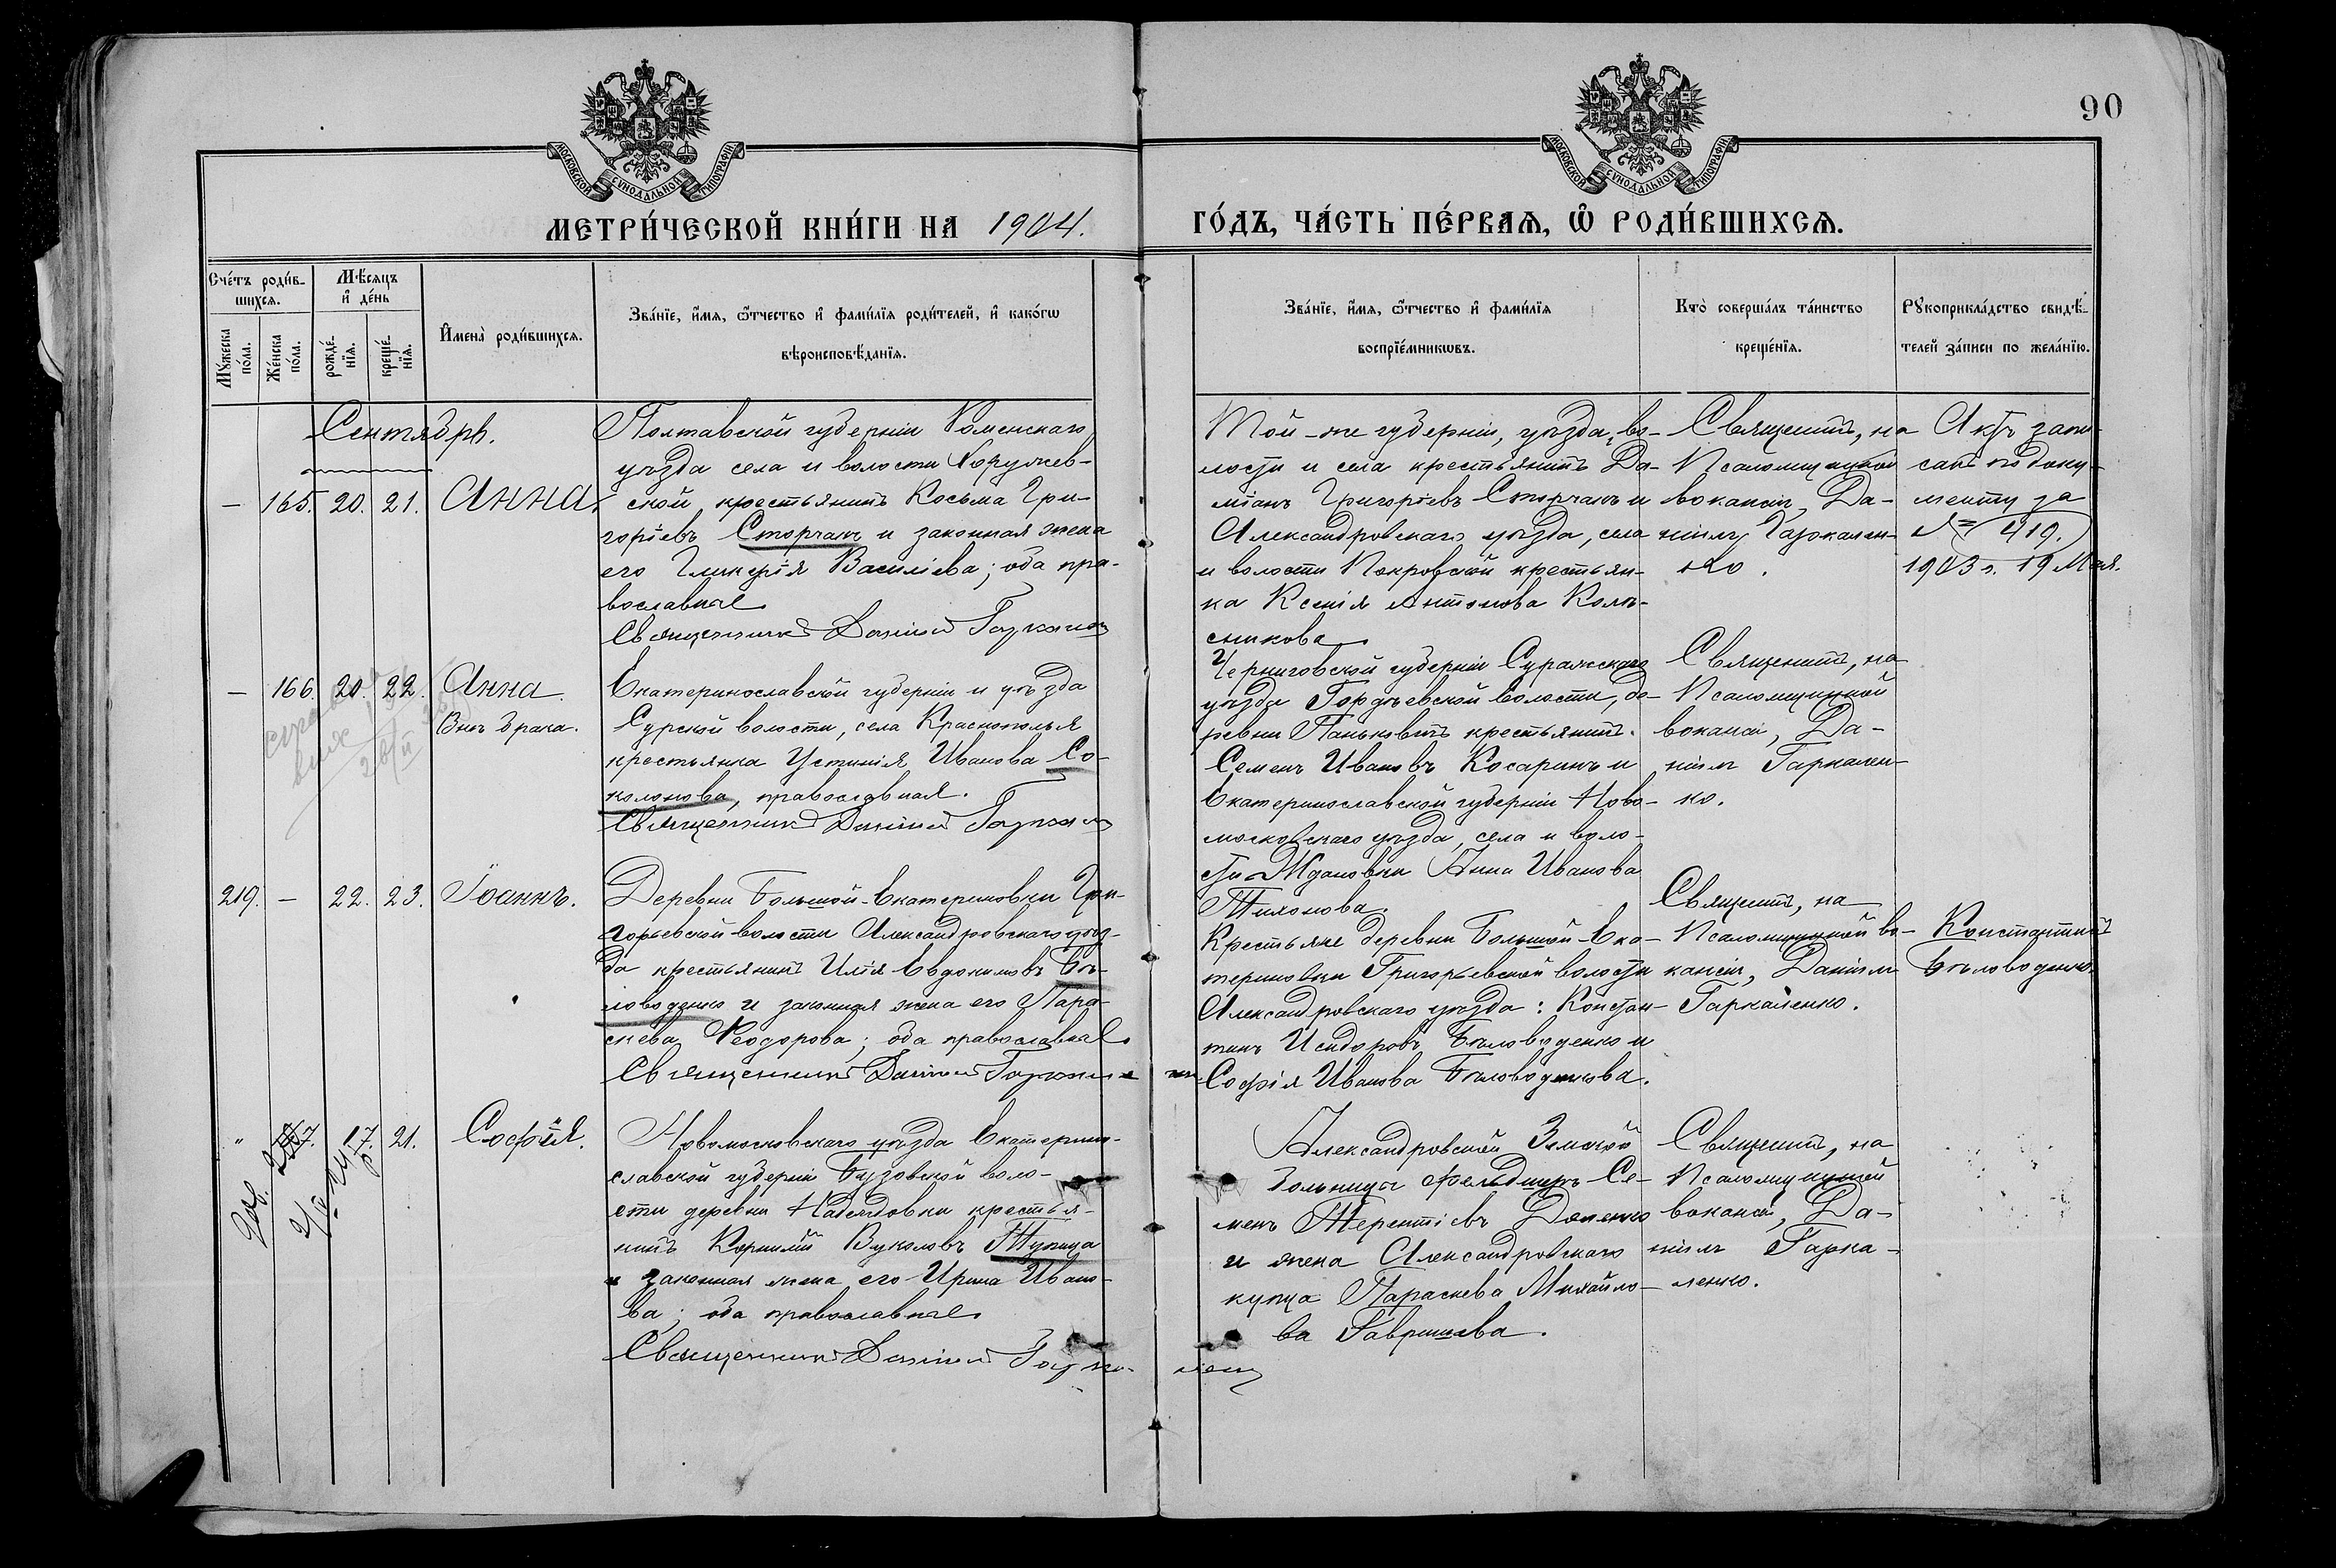 90
МОСКОВСКОЙ СѴНОДАЛЬНОЙ ТИПОГРАФІИ
МОСКОВСКОЙ СѴНОДАЛЬНОЙ ТИПОГРАФІИ
МЕТРИ́ЧЕСКОЙ КНИ́ГИ НА 1904.
ГО́ДЪ, ЧА́СТЬ ПЕ́РВАѦ, Ѡ РОДИ́ВШИХСѦ.
Сче́тъ роди́в-
шихсѧ.
Мꙋжеска по́ла.
Же́нска по́ла.
Мѣ́сѧцъ
и҆ де́нь
рожде́-
нїѧ.
креще́-
нїѧ.
И҆мена̀ роди́вшихсѧ.
Зва́нїе, и҆́мѧ, ѻ҆́тчество и҆ фами́лїѧ роди́телей, и҆ како́гѡ
вѣроисповѣ́данїѧ.
Зва́нїе, и҆́мѧ, ѻ҆́тчество и҆ фами́лїѧ
воспрїе́мникѡвъ.
Кто̀ соверша́лъ та́инство
креще́нїѧ.
Рꙋкоприкла́дство свидѣ́-
телей за́писи по жела́нїю.
Сентябрь.
— 165. 20. 21. Анна.
Полтавской губерніи Роменскаго
уѣзда села и волости Хоружев-
ской крестьянинъ Косьма Гри-
горіевъ Сторчакъ и законная жена
его Гликерія Василіева; оба пра-
вославные
Священникъ Даніилъ Гаркален
Той-же губерніи, уѣзда, во-
лости и села крестьянинъ Да-
міанъ Григоріевъ Сторчакъ и
Александровскаго уѣзда, села
и волости Покровской крестьян-
ка Ксенія Антонова Колѣ-
сникова
Священ., на
Псаломщицкой
вокансіи, Да-
ніилъ Гаркален-
ко.
Актъ запи-
санъ по доку-
менту за
№ 419.
1903 г. 19 Мая.
— 166. 20. 22. Анна.
Внѣ брака.
Екатеринославской губерніи и уѣзда
Сурской волости, села Краснополья
крестьянка Устинія Иванова Со-
колонова, православная.
Священникъ Даніилъ Гаркален
Черниговской губерніи Суражскаго
уѣзда Гордѣевской волости, де-
ревни Паньковъ крестьянинъ
Семенъ Ивановъ Косаринъ и
Екатеринославской губерніи Ново-
московскаго уѣзда, села и воло-
сти Ждановки Анна Иванова
Тихонова.
Священ., на
Псаломщицкой
вокансіи, Да-
ніилъ Гаркален-
ко.
219. — 22. 23. Іоаннъ.
Деревни Большой-Екатериновки Гри-
горьевской волости Александровскаго уѣз-
да крестьянинъ Илія Евдокимовъ Бѣ-
ловоденко и законная жена его Пара-
скева Ѳеодорова; оба православные.
Священникъ Даніилъ Гаркален
Крестьяне деревни Большой-Ека-
териновки Григорьевской волости
Александровскаго уѣзда: Констан-
тинъ Исидоровъ Бѣловоденко и
Софія Иванова Бѣловоденкова.
Священ., на
Псаломщицкой во-
кансіи, Даніилъ
Гаркаленко.
Константинъ
Бѣловоденко.
" 17. 21. Софія.
Новомосковскаго уѣзда Екатерино-
славской губерніи Бузовской воло-
сти деревни Надеждовки крестья-
нинъ Корнилій Вуколовъ Тупица
и законная жена его Ирина Ивано-
ва; оба православные
Священникъ Даніилъ Гарка-
лен
Александровской Земской
больницы Фельдшеръ Се-
менъ Терентіевъ Доленко
и жена Александровскаго
купца Параскева Михайло-
ва Гавришева.
Священ., на
Псаломщицкой
вокансіи, Да-
ніилъ Гарка-
ленко.